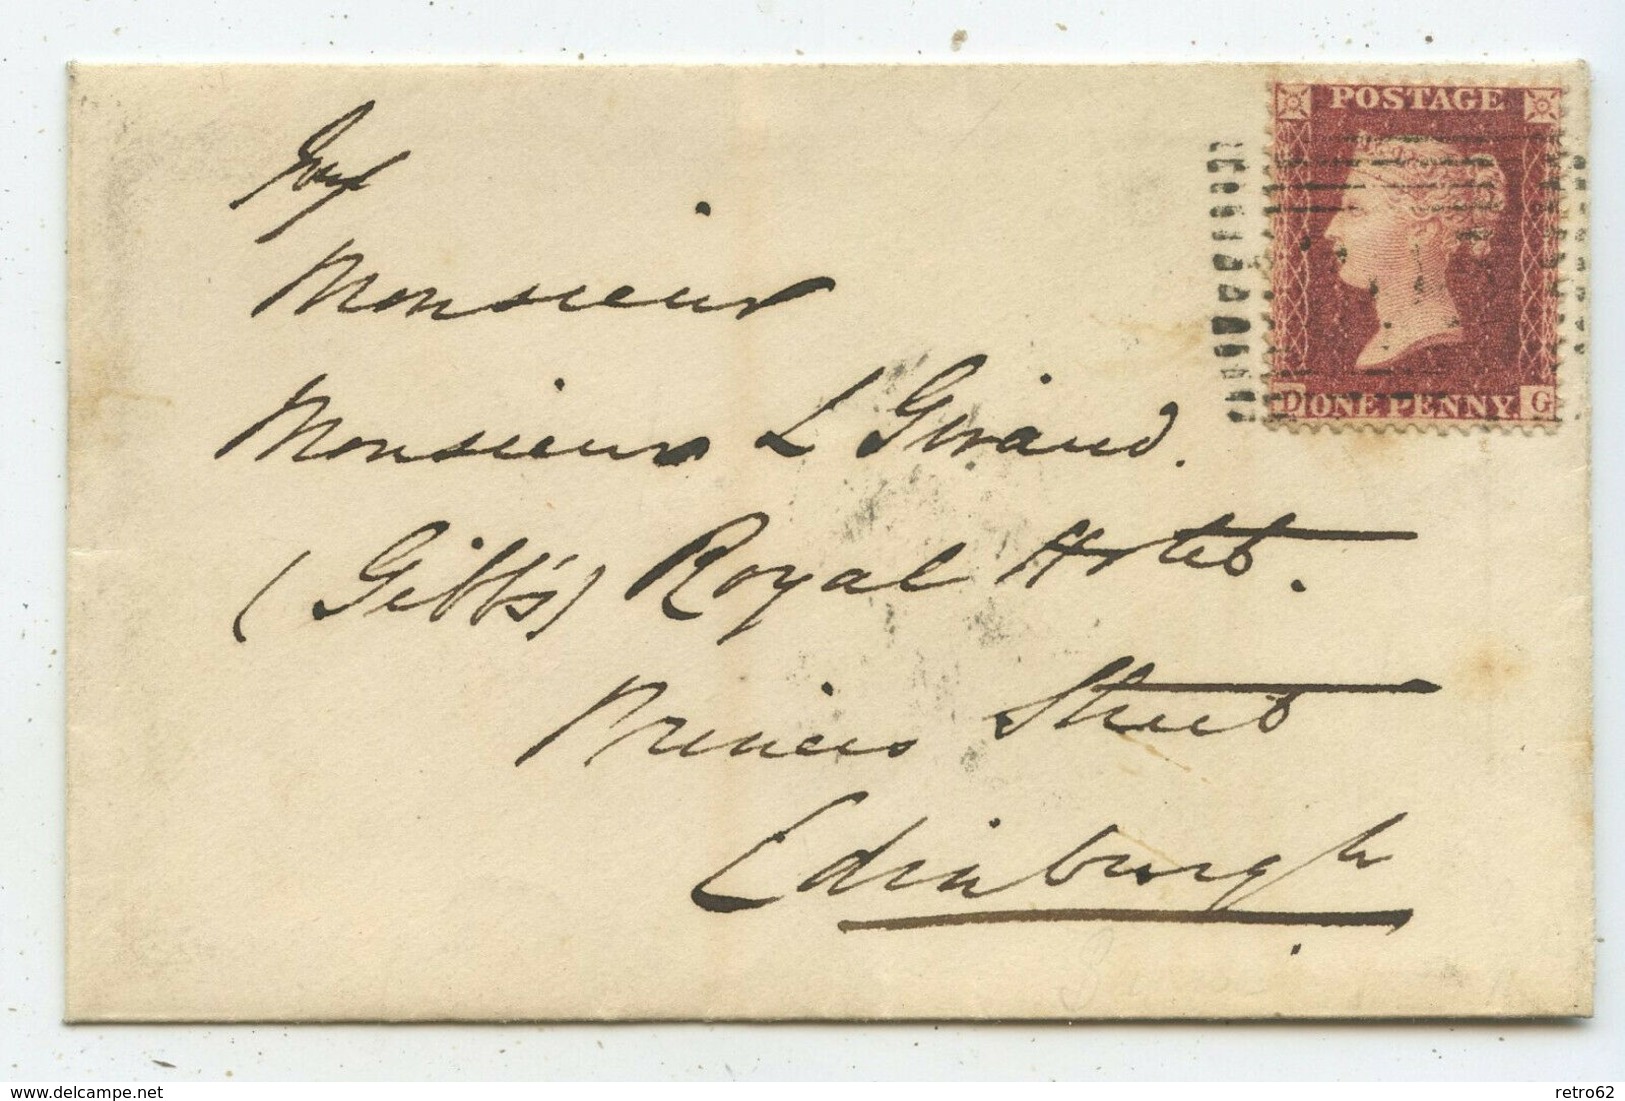 POSTAGE
D ONE PENNY. G
Monsieur
Monsieur L Giraud.
(Gibb's) Royal Hotel.
Princes Street
Edinburgh
delcampe.net
retro62